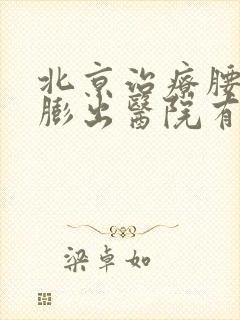 北京治療腰
膨出醫院有
梁卓如